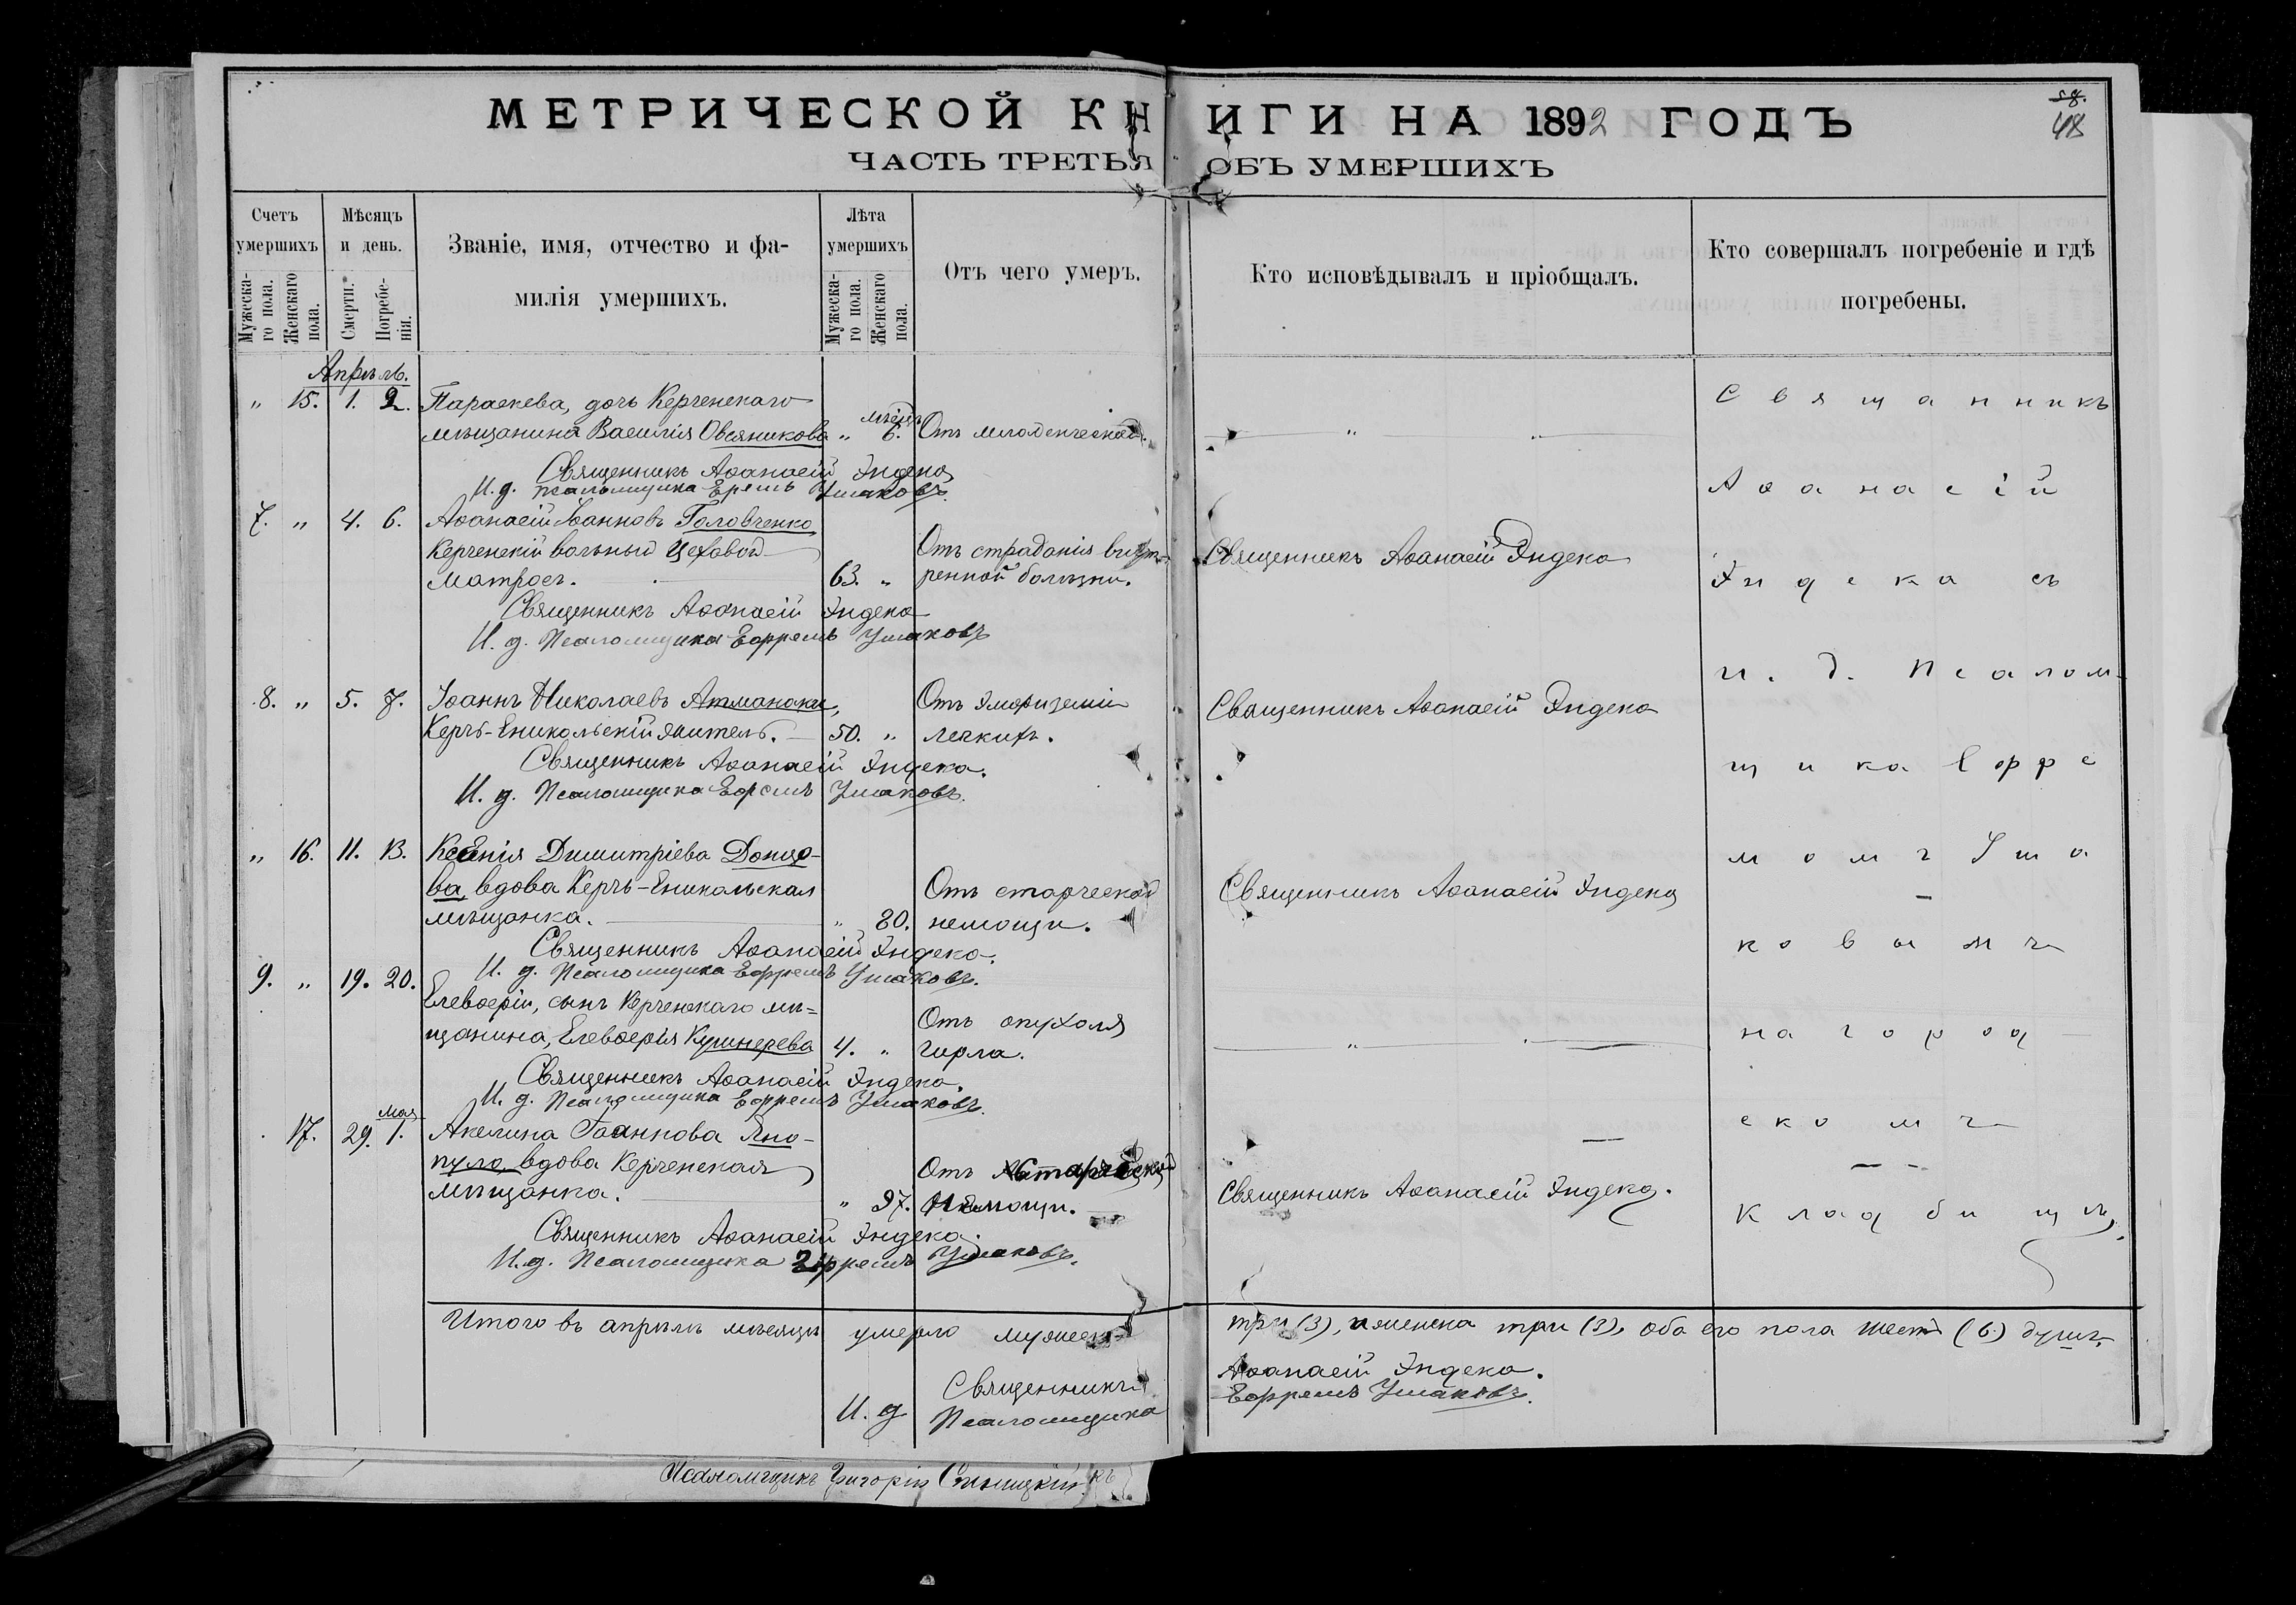 МЕТРИЧЕСКОЙ КНИГИ НА 1892 ГОДЪ
58.
48
ЧАСТЬ ТРЕТЬЯ ОБЪ УМЕРШИХЪ
Счетъ умершихъ
Мужеска-го пола.
Женскаго пола.
Мѣсяцъ и день.
Смерти.
Погребе-нія.
Званіе, имя, отчество и фа-
милія умершихъ.
Лѣта умершихъ
Мужеска-го пола.
Женскаго пола.
Отъ чего умеръ.
Кто исповѣдывалъ и пріобщалъ.
Кто совершалъ погребеніе и гдѣ
погребены.
Апрѣль.
" 15. 1. 2. Параскева, дочь Керченскаго
мѣщанина Василія Овсяникова " 6. мѣсяц. Отъ младенческой.
Священникъ Аѳанасій Индека
И. д. псаломщика Ефремъ Ушаковъ.
7. " 4. 6. Аѳанасій Іоанновъ Головченко
Керченскій вольный цеховой
матросъ. 63. " Отъ страданія внут-
ренной болѣзни. Священникъ Аѳанасій Индека
Священникъ Аѳанасій Индека
И. д. Псаломщика Ефремъ Ушаковъ
8. " 5. 7. Іоаннъ Николаевъ Атманаки,
Керчь-Еникольскій житель. 50. " Отъ эмфиземіи
легкихъ. Священникъ Аѳанасій Индека
Священникъ Аѳанасій Индека.
И. д. Псаломщика Ефремъ Ушаковъ.
" 16. 11. 13. Ксенія Димитріева Донцо-
ва, вдова Керчь-Еникальская
мѣщанка. " 80. Отъ старческой
немощи. Священникъ Аѳанасій Индека
Священникъ Аѳанасій Индека.
И. д. Псаломщика Ефремъ Ушаковъ.
9. " 19. 20. Елевѳерій, сынъ Керченскаго мѣ=
щанина, Елевѳерія Кушнерева 4. " Отъ опухоля
гирла. "
Священникъ Аѳанасій Индека.
И. д. Псаломщика Ефремъ Ушаковъ.
17. 29. Мая 1. Акелина Іоаннова Яно-
пуло, вдова Керченская
мѣщанка. " 97. Отъ старческой
немощи. Священникъ Аѳанасій Индека.
Священникъ Аѳанасій Индека.
И. д. Псаломщика Ефремъ Ушаковъ.
Священникъ
Аѳанасій
Индека съ
и. д. Псалом-
щика Ефре
момъ Уша
ковымъ
на город
скомъ
кладбищѣ.
Итого въ апрѣлѣ мѣсяцѣ умерло мужеск. три (3), женска три (3), обоего пола шесть (6) душъ.
Священникъ Аѳанасій Индека.
И. д. Псаломщика Ефремъ Ушаковъ.
Псаломщикъ Григорій